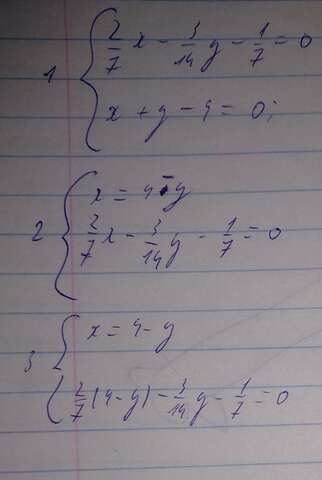 1 { 2/7 x - 3/14 y - 1/7 = 0
x + y - 4 = 0;
2 { x = 4 - y
2/7 x - 3/14 y - 1/7 = 0
3 { x = 4 - y
2/7 (4 - y) - 3/14 y - 1/7 = 0